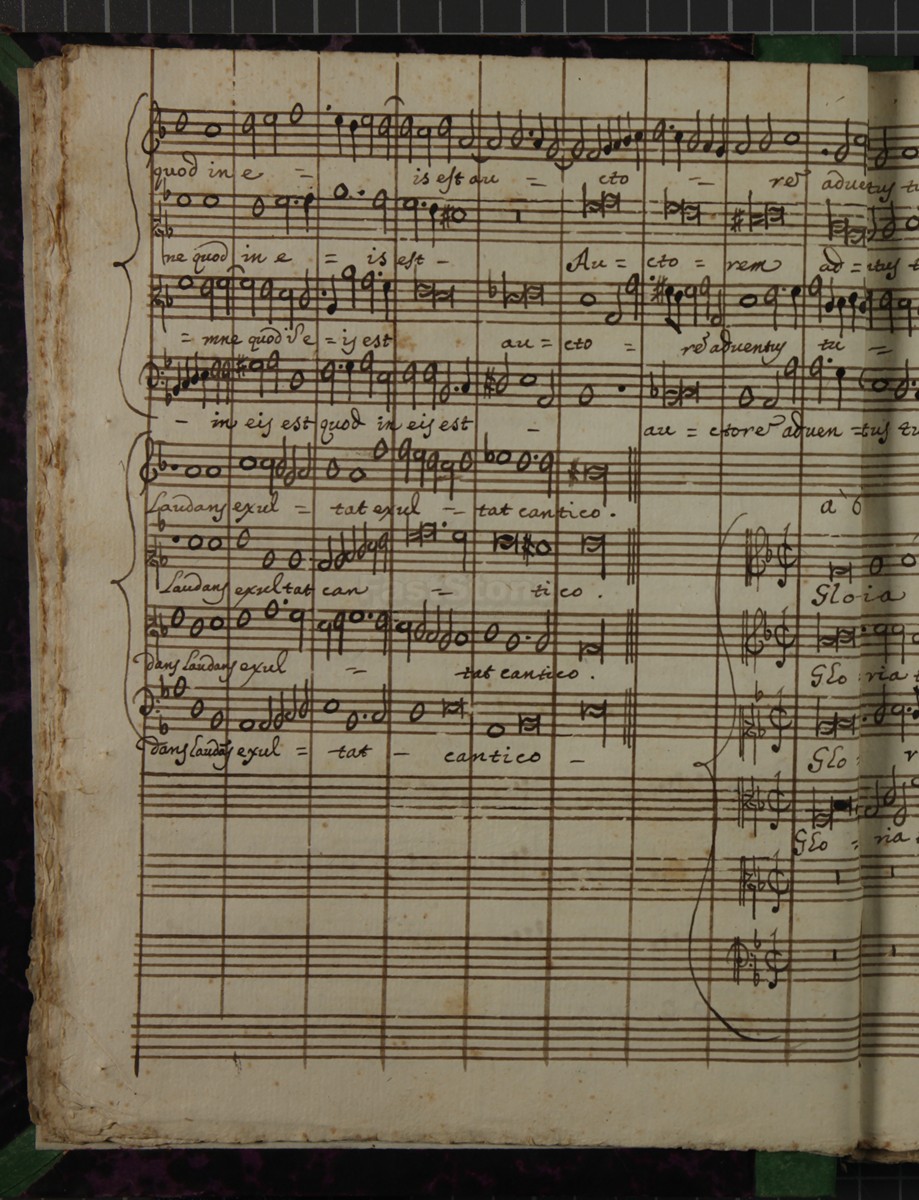 quod in e = is est au = cto – re adventus tu
ne quod in e = is est – Au = cto = rem ad = ntus t
= mne quod i e = is est au = cto = re adventus tu –
– in eis est quod in eis est – au = ctore adven = tus tu
Laudans exul = tat exul – = tat cantico .
a 6
Laudans exultat can = tico .
Gloia
dans laudans exul = tat cantico .
Glo ria t
dans laudans exul = tat – cantico –
Glo : r
Glo : ria